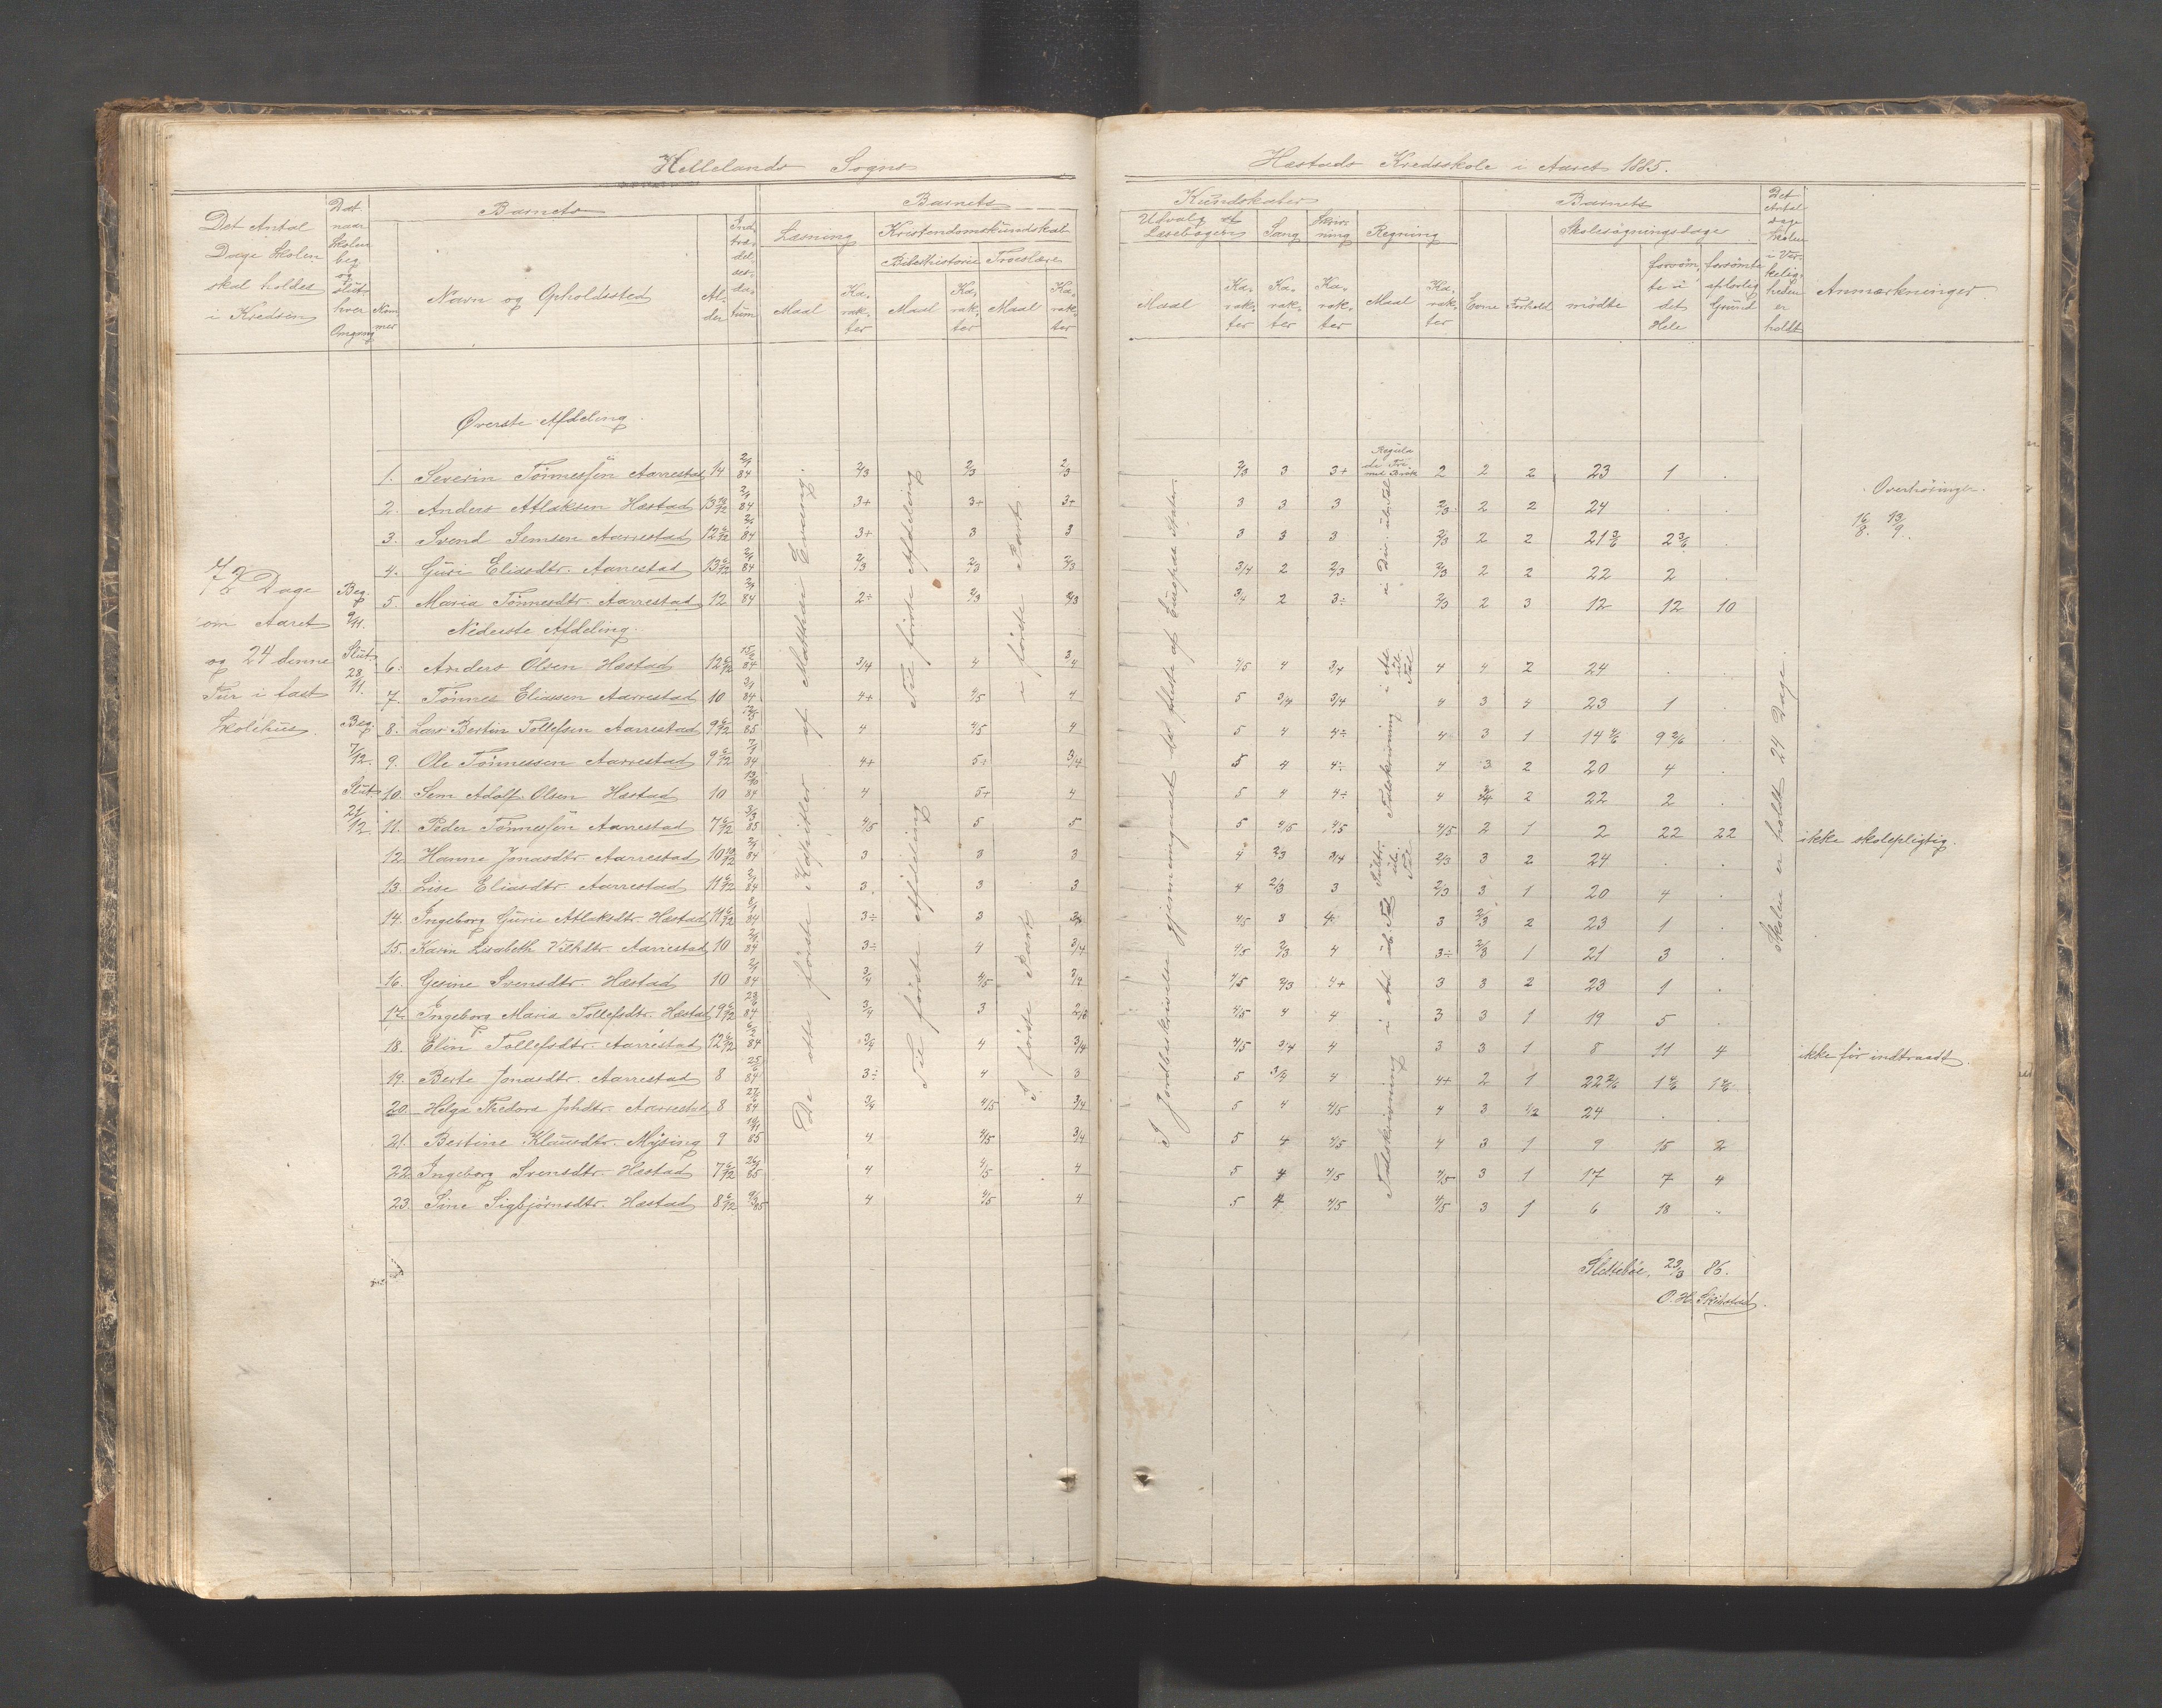 Hellelands Sogns
Hæstads Kredsskole i Aaret 1885.
Det Antal Dage Skolen skal holdes i Kredsen
Dat. naar Skolen beg. og slut. hver Omgang
Barnets
Nummer
Navn og Opholdssted
Alder
Indtrædelsesdatum
Barnets
Læsning
Kristendomskundskab
Bibelhistorie
Troeslære
Maal
Karakter
Maal
Karakter
Maal
Karakter
Kundskaber
Udvalg af Læsebogen
Sang
Skrivning
Regning
Maal
Karakter
Karakter
Karakter
Maal
Karakter
Barnets
Evne
Forhold
Skolesøgningsdage
mødte
forsømte i det Hele
forsømte af lovlig Grund
Det Antal Dage Skolen i Virkeligheden er holdt
Anmærkninger
Øverste Afdeling.
1. Severin Tönnessen Aarrestad 14 2/1 84 2/3 2/3 2/3 2/3 3 3+ 2 2 2 23 1 .
2. Anders Atlaksen Hæstad 13 10/12 2/1 84 3+ 3+ 3+ 3 3 3 2/3 2 2 24 . .
3. Svend Semsen Aarrestad 12 6/12 2/1 84 3+ 3 3 3 3 3 2/3 2 2 21 3/6 2 3/6 .
4. Guri Eliasdtr. Aarrestad 13 6/12 2/1 84 2/3 2/3 2/3 3/4 2 2/3 2/3 2 2 22 2 .
5. Maria Tönnesdtr. Aarrestad 12 2/1 84 2÷ 2/3 2/3 3/4 2 3÷ 2/3 2 3 12 12 10
Nederste Afdeling.
6. Anders Olsen Hæstad 12 6/12 84 3/4 4 3/4 4/5 4 3/4 4 4 2 24 . .
7. Tönnes Eliassen Aarrestad 10 84 4+ 4/5 4 5 3/4 3/4 4 3 4 23 1 .
8. Lars Bertin Tollefsen Aarrestad 9 6/12 85 4 4/5 4 5 4 4÷ 4 3 1 14 4/6 9 2/6 .
9. Ole Tönnessen Aarrestad 9 6/12 7/1 84 4+ 5+ 3/4 5 4 4÷ 4 3 2 20 4 .
10. Sem Adolf Olsen Hæstad 10 13/10 84 4 5+ 4 5 4 4÷ 4 3/4 2 22 2 .
11. Peder Tönnessen Aarrestad 7 6/12 3/3 85 4/5 5 5 5 4/5 4/5 4/5 2 1 2 22 22 ikke skolepligtig.
12. Hanne Jonasdtr. Aarrestad 10 10/12 2/1 84 3 3 3 4 2/3 3/4 2/3 3 2 24 . .
13. Lise Eliasdtr. Aarrestad 11 6/12 2/1 84 3 3 3 4 2/3 3 2/3 3 1 20 4 .
14. Ingeborg Gurie Atlaksdtr. Hæstad 11 6/12 8/1 84 3÷ 3 3/4 4/5 3 4 3 2/3 2 23 1 .
15. Karen Lisabeth Vilhdtr. Aarrestad 10 2/1 84 3÷ 4 3/4 4/5 2/3 4 3÷ 2/3 1 21 3 .
16. Gesine Svensdtr. Hæstad 10 2/1 84 3/4 4/5 3/4 4/5 2/3 4+ 3 3 2 23 1 .
17. Ingeborg Maria Tollefsdtr. Hæstad 9 6/12 84 3/4 3 2/3 4/5 4 4 3 3 1 19 5 .
18. Elin Tollefsdtr. Aarrestad 12 6/12 84 3/4 4 3/4 4/5 3/4 4 3 3 1 8 11 4 ikke før indtraadt.
19. Berte Jonasdtr. Aarrestad 8 84 3÷ 4 3 5 3/4 4 4+ 2 1 22 2/6 1 4/6 1 4/6
20. Helga Thedora Johdtr. Aarrestad 8 84 3/4 4/5 3/4 5 4 4/5 4 3 1/2 24 . .
21. Bertine Klausdtr. Mysing 9 85 4 4/5 3/4 5 4 4/5 4 3 1 9 15 2
22. Ingeborg Svensdtr. Hæstad 7 6/12 85 4 4/5 4 5 4 4/5 4/5 3 1 17 7 4
23. Sine Sigbjørnsdtr. Hæstad 8 6/12 85 4 4/5 4 5 4 4/5 4/5 3 1 6 18 .
72 Dage
om Aaret
og 24 denne
Tur i fast
Skolehus.
Beg. 9/11.
Slut. 28/11.
Beg. 7/12.
Slut. 21/12.
De otte første Kapitler af Matthæi Evang.
Til første Afdeling
Til første Afdeling
i første Part
I første Part
I Jordbeskrivelse gjennemgaaet det første af Europas Stater.
Regula de Tri med Brøk
i Div. i ub. Tal
Talskrivning i Ad. ub. Tal
Subtr. ub. Tal
Talskrivning i Ad. ub. Tal
Skolen er holdt 24 Dage.
Overhøringer.
16/8. 13/9.
Slettebøe, 29/3 86.
O. H. Skibstad.